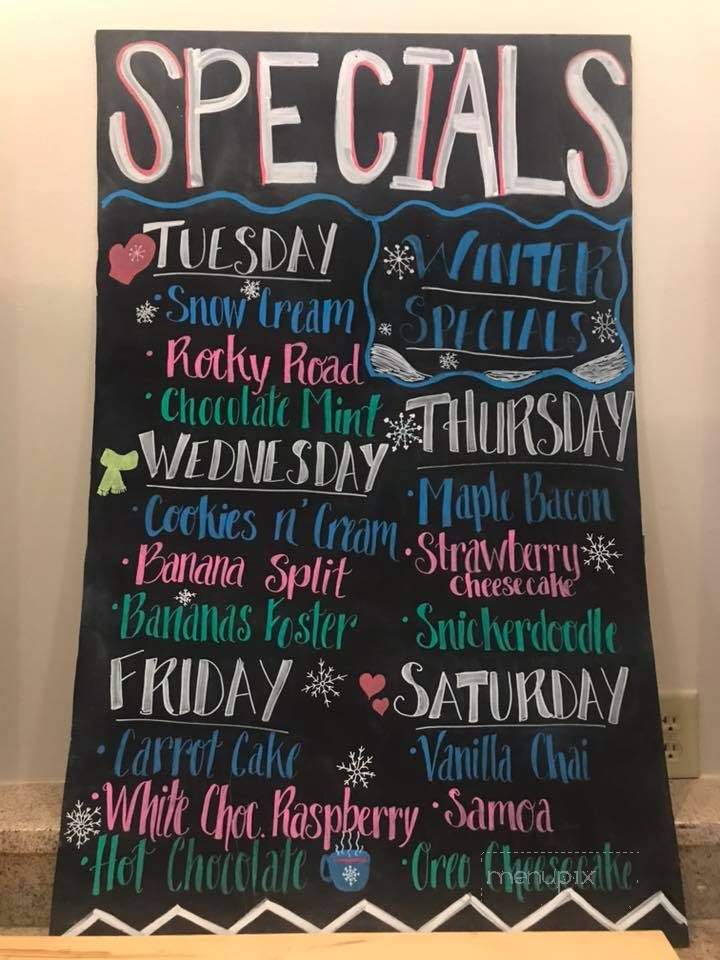 SPECIALS
TUESDAY
• Snow Cream
• Rocky Road
• Chocolate Mint
WINTER
SPECIALS
WEDNESDAY
• Cookies n' Cream
• Banana Split
• Bananas Foster
THURSDAY
• Maple Bacon
• Strawberry
Cheesecake
• Snickerdoodle
FRIDAY
• Carrot Cake
• White Choc. Raspberry
• Hot Chocolate
SATURDAY
• Vanilla Chai
• Samoa
• Oreo Cheesecake
menupix